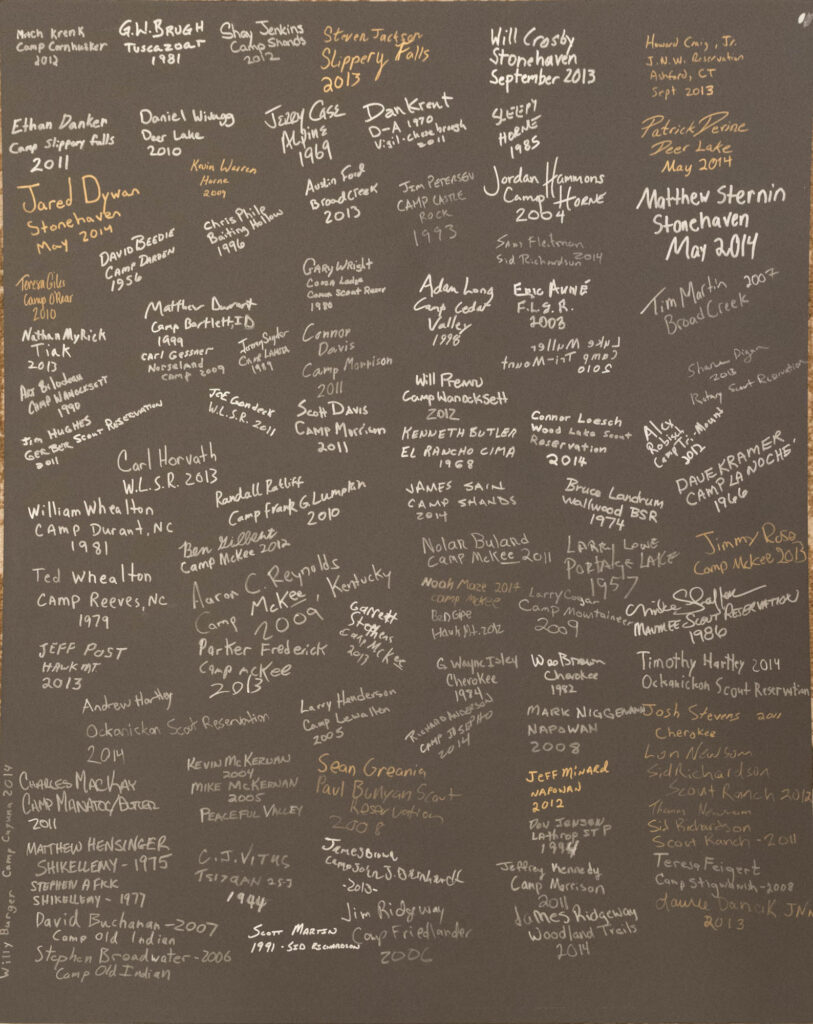 Mach Krenk
Camp Cornhusker
2012
G.W. BRUGH
TUSCAZOAR
1981
Shay Jenkins
Camp Shands
2012
Steven Jackson
Slippery Falls
2013
Will Crosby
Stonehaven
September 2013
Howard Craig, Jr.
J.N.W. Reservation
Ashford, CT
Sept 2013
Ethan Danker
Camp Slippery falls
2011
Daniel
Deer Lake
2010
Jerry Case
Alpine
1969
Dan Krent
D-A 1970
Vigil-Cheesebrough
2011
SLEEPY
HORNE
1985
Patrick Perine
Deer Lake
May 2014
Jared Dywan
Stonehaven
May 2014
Kevin Warren
Horne
2009
Austin Ford
Broad Creek
2013
JIM PETERSEN
CAMP CASTLE
ROCK
1993
Jordan Hammons
Camp HORNE
2004
Matthew Sternin
Stonehaven
May 2014
DAVID BEEDIE
CAMP DARDEN
1956
Chris Phile
Baiting Hollow
1996
Sam Fleitman
Sid Richardson 2014
Teresa Giles
Camp O'Rear
2010
GARY WRIGHT
Lodge
Scout Reserv
1980
Adam Long
Camp Cedar
Valley
1998
ERIC AUNÉ
F.L.S.R.
2003
Tim Martin 2007
Broad Creek
Nathan Myrick
Tiak
2013
Matthew Durrant
Camp Bartlett, ID
1999
CARL Gessner
Norseland
CAMP 2009
Jimmy Snyder
CAMP LAHOTA
1989
Connor
Davis
Camp Morrison
2011
Luke Muller
Camp Tri-Mount
2010
Shane Digan
2013
Rotary Scout Reservation
Art Bilodeau
CAMP WANOCKSETT
1990
Will Premru
Camp Wanocksett
2012
Jim HUGHES
GERBER SCOUT RESERVATION
2011
JOE Gandeck
W.L.S.R. 2011
Scott DAVIS
CAMP Morrison
2011
KENNETH BUTLER
EL RANCHO CIMA
1968
Connor Loesch
Wood Lake Scout
Reservation
2014
Alex
Robish
Camp Tri-Mount
2012
DAVE KRAMER
CAMP LA NOCHE
1966
Carl Horvath
W.L.S.R. 2013
William Whealton
CAMP Durant, NC
1981
Randall Ratliff
Camp Frank G Lumpkin
2010
JAMES SAIN
CAMP SHANDS
2014
Bruce Landrum
Wallwood BSR
1974
Ben Gilbert
Camp McKee 2012
Nolan Buland
Camp McKee 2011
LARRY LOWE
PORTAGE LAKE
1957
Jimmy Rose
Camp McKee 2013
Ted Whealton
CAMP Reeves, NC
1979
Aaron C. Reynolds
Camp McKee, Kentucky
2009
Noah Maze 2014
Camp McKee
Ben Gipe
Hawk Mt. 2012
Larry Cogan
Camp Mountaineer
2009
Mike Shaffer
MAUMEE SCOUT RESERVATION
1986
JEFF POST
HAWK MT
2013
Parker Frederick
Camp McKee
2013
Garrett
Stephens
Camp McKee
2013
G. Wayne Isley
Cherokee
1984
Woo Brown
Cherokee
1982
Timothy Hartley 2014
Ockanickon Scout Reservation
Andrew Hartley
Ockanickon Scout Reservation
2014
Larry Handerson
Camp Lewallen
2005
RICHARD ANDERSON
CAMP JOSEPHO
2014
MARK NIGGEMANN
NAPOWAN
2008
Josh Stevens 2011
Cherokee
CHARLES MACKAY
CAMP MANATOC/BUTLER
2011
KEVIN MCKERNAN
2004
MIKE MCKERNAN
2005
PEACEFUL VALLEY
Sean Greania
Paul Bunyan Scout
Reservation
2008
JEFF MINARD
NAPOWAN
2012
Lon Newsom
Sid Richardson
Scout Ranch 2012
Dov JENSEN
Lathrop STP
1994
Thomas Newsom
Sid Richardson
Scout Ranch - 2011
MATTHEW HENSINGER
SHIKELLEMY - 1975
STEPHEN AFKK
SHIKELLEMY - 1977
C.J. VITUS
1994
James Brown
Camp John J. Dernhardt
-2013-
Jeffrey Kennedy
Camp Morrison
2011
Teresa Feigert
Camp Stigwandish - 2008
David Buchanan - 2007
Camp Old Indian
Stephen Broadwater - 2006
Camp Old Indian
SCOTT MARTIN
1991 - SID RICHARDSON
Jim Ridgway
Camp Friedlander
2006
James Ridgeway
Woodland Trails
2014
Laurie Dancik JN
2013
Willy Burger Camp Cayuna 2014